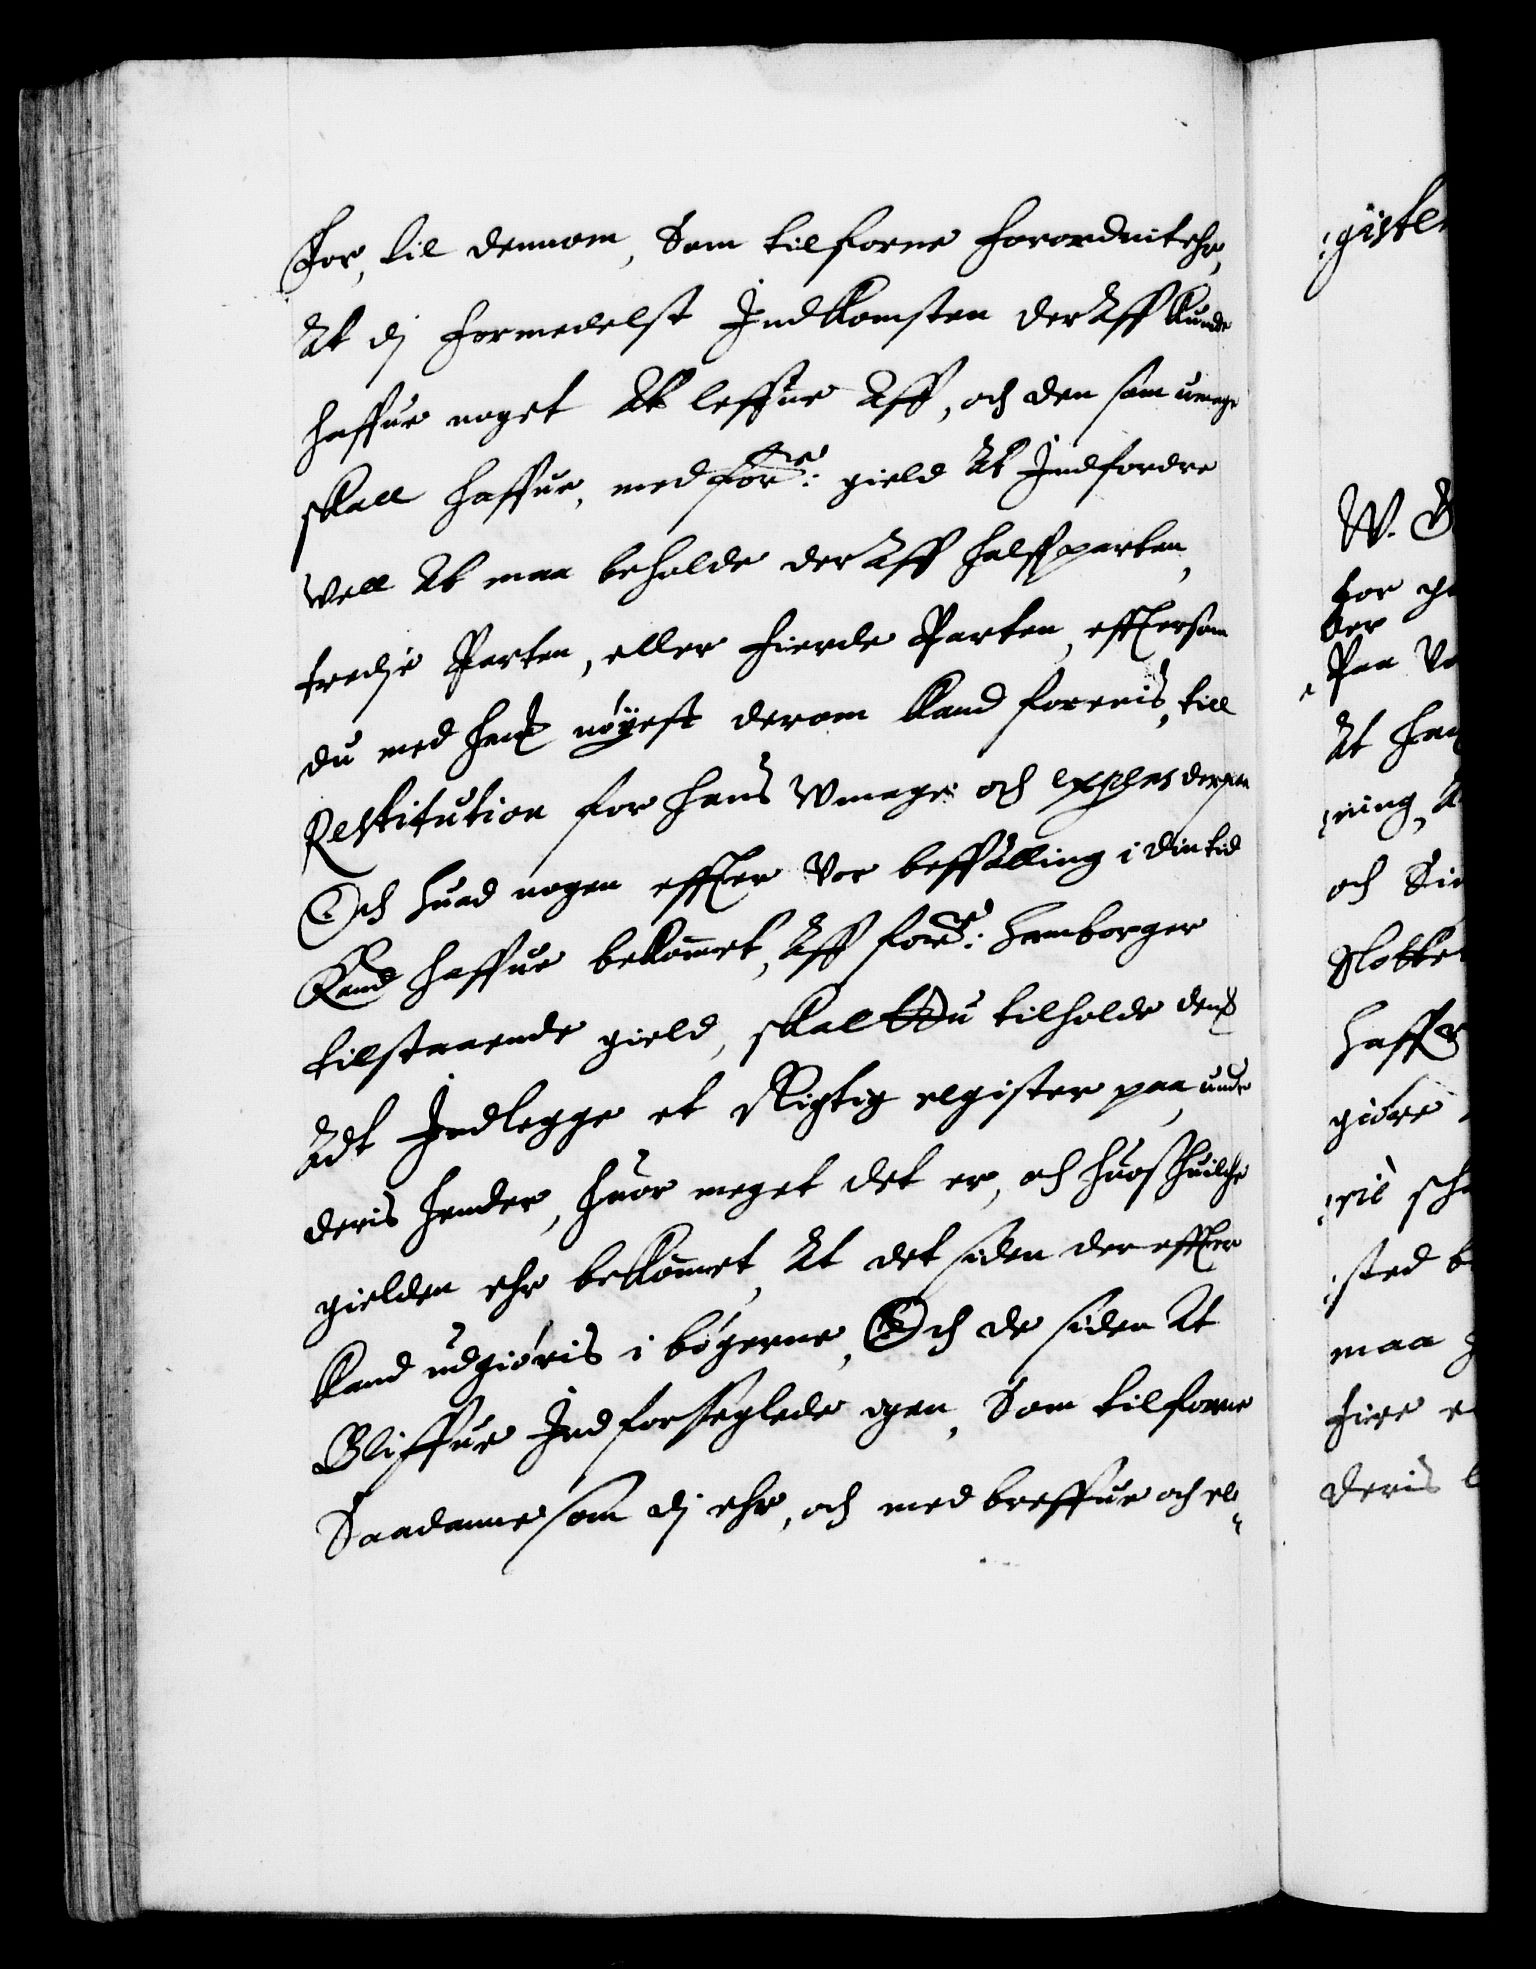 for, til dennom, Som tilforne forordnit ehr,
At dj formedelst Indkomsten der Aff kunde
haffue noget At leffue Aff, och den som umage
skall haffue, med for:ne gield At Indfordre
vell At maa beholde der Aff halffparten,
tredje Parten, eller fierde Parten, effter som
du med hannem nøyest derom kand foreenis, till
Restitution for hans Umage och expens derpaa
Och huad nogen effter vor beffalling i din tid
Kand haffue bekommet, Aff for:ne Hamborger
tilstaaende gield, skaltu tilholde dennem
Adt Indlegge et Rigtig register paa, under
deris hender, huor meget det er, och huos huilche
gielden ehr bekommet, At det siden der effter
kand udgiøris i bøgerne, Och de siden At
Bliffue Indforseglede igen, Som tilforne
Saadanne som dj ehr, och med breffue och re-
gister
W. G
for
der
Paa
At han
ning,
och Sin
Slotte
haffr
giøre
sted
maa
fire
deris